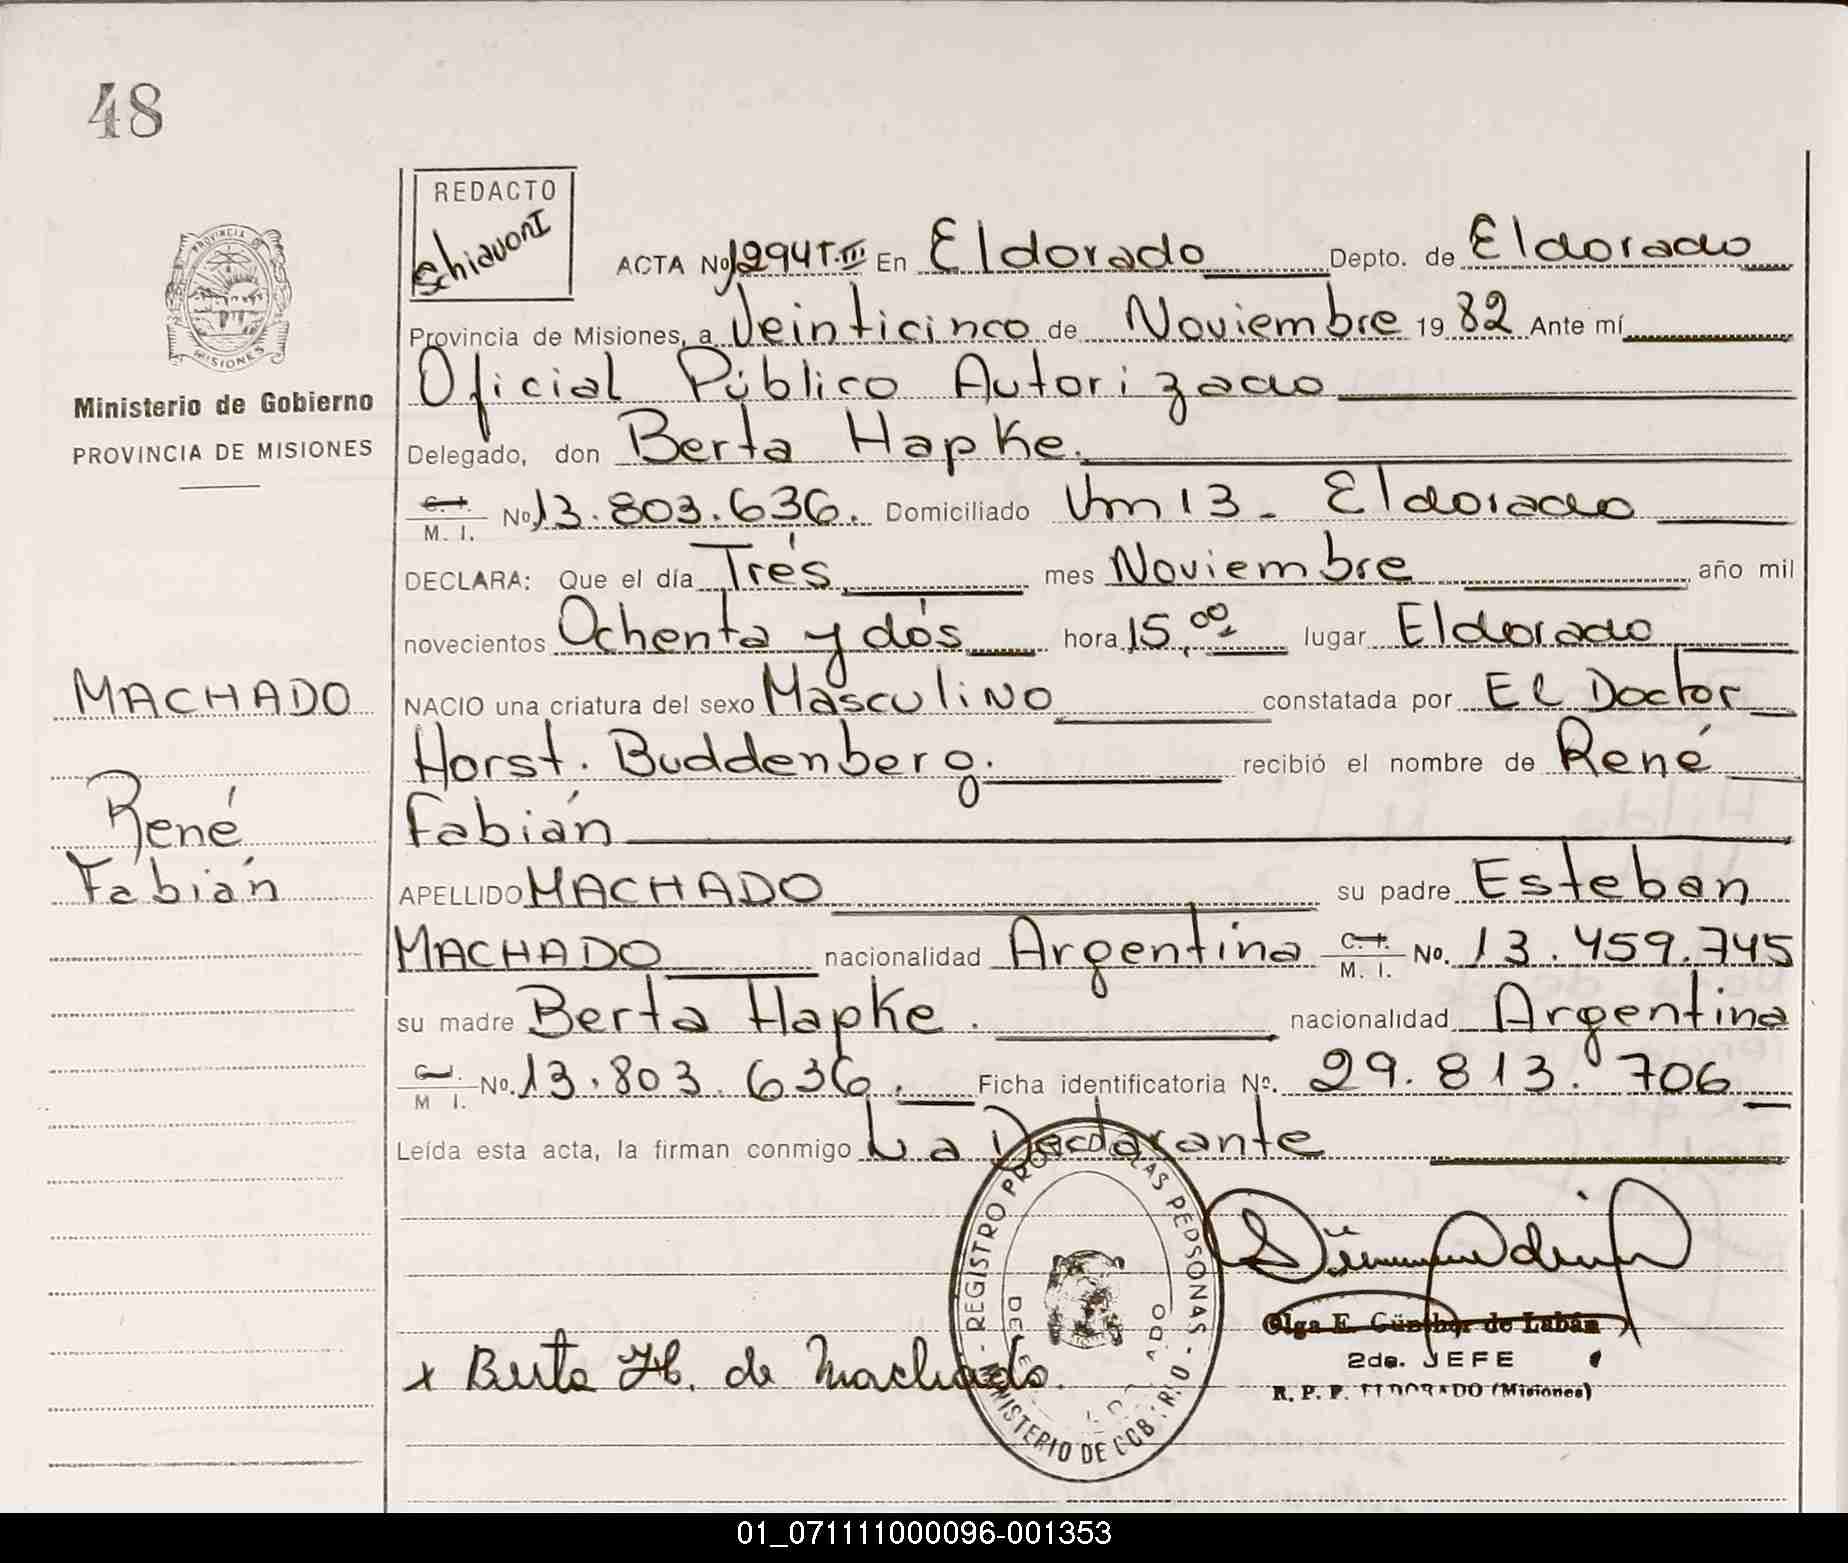 48
PROVINCIA DE
MISIONES
Ministerio de Gobierno
PROVINCIA DE MISIONES
MACHADO
René
Fabián
REDACTO
Schiavoni
ACTA No 1294 T.III En Eldorado Depto. de Eldorado
Provincia de Misiones, a Veinticinco de Noviembre 19 82 Ante mí
Oficial Público Autorizado
Delegado, don Berta Hapke.
C. I. M. I. No 13.803.636. Domiciliado Km 13 - Eldorado
DECLARA: Que el día Trés mes Noviembre año mil
novecientos Ochenta y dós hora 15,00 lugar Eldorado
NACIO una criatura del sexo Masculino constatada por El Doctor
Horst. Buddenberg. recibió el nombre de René
Fabián
APELLIDO MACHADO su padre Esteban
MACHADO nacionalidad Argentina C. I. M. I. No. 13.459.745
su madre Berta Hapke. nacionalidad Argentina
M I. No. 13.803.636. Ficha identificatoria Nº. 29.813.706
Leída esta acta, la firman conmigo La Declarante
REGISTRO DE LAS PERSONAS
MINISTERIO DE GOB
x Berta H. de Machado.
Olga E. Günther de Labán
2da. JEFE
R. P. P. ELDORADO (Misiones)
01_071111000096-001353